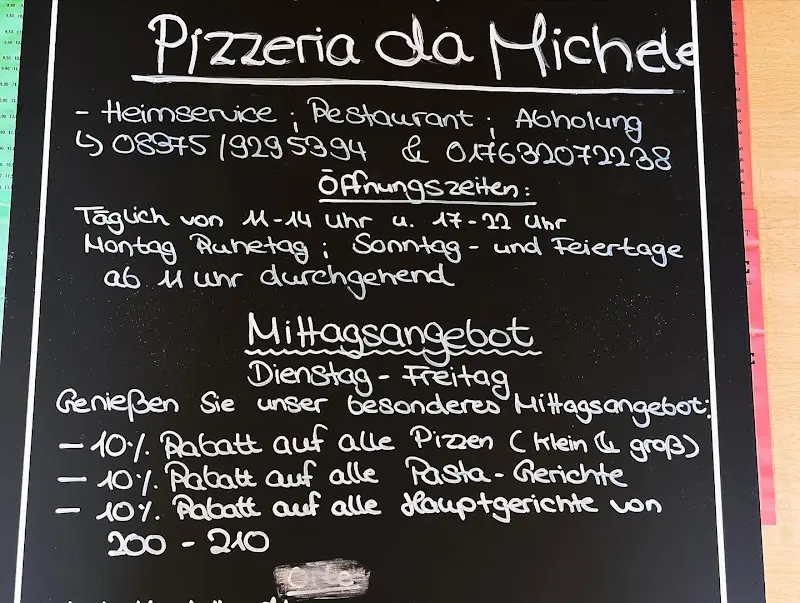 Pizzeria da Michele
- Heimservice ; Restaurant ; Abholung
↳ 08375/9295394 & 017632072238
Öffnungszeiten:
Täglich von 11-14 Uhr u. 17-22 Uhr
Montag Ruhetag ; Sonntag - und Feiertage
ab 11 Uhr durchgehend
Mittagsangebot
Dienstag - Freitag
Genießen Sie unser besonderes Mittagsangebot:
- 10% Rabatt auf alle Pizzen (klein & groß)
- 10% Rabatt auf alle Pasta-Gerichte
- 10% Rabatt auf alle Hauptgerichte von
200 - 210
Orte